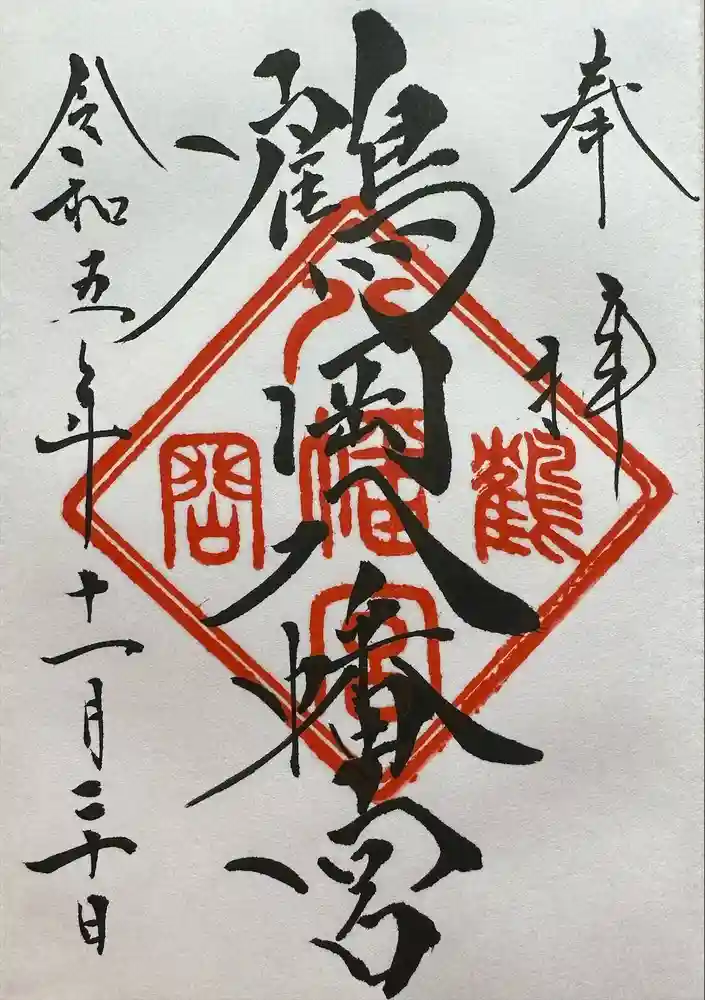 奉拝
鶴岡八幡宮
鶴岡
八幡宮
令和五年十一月二十日